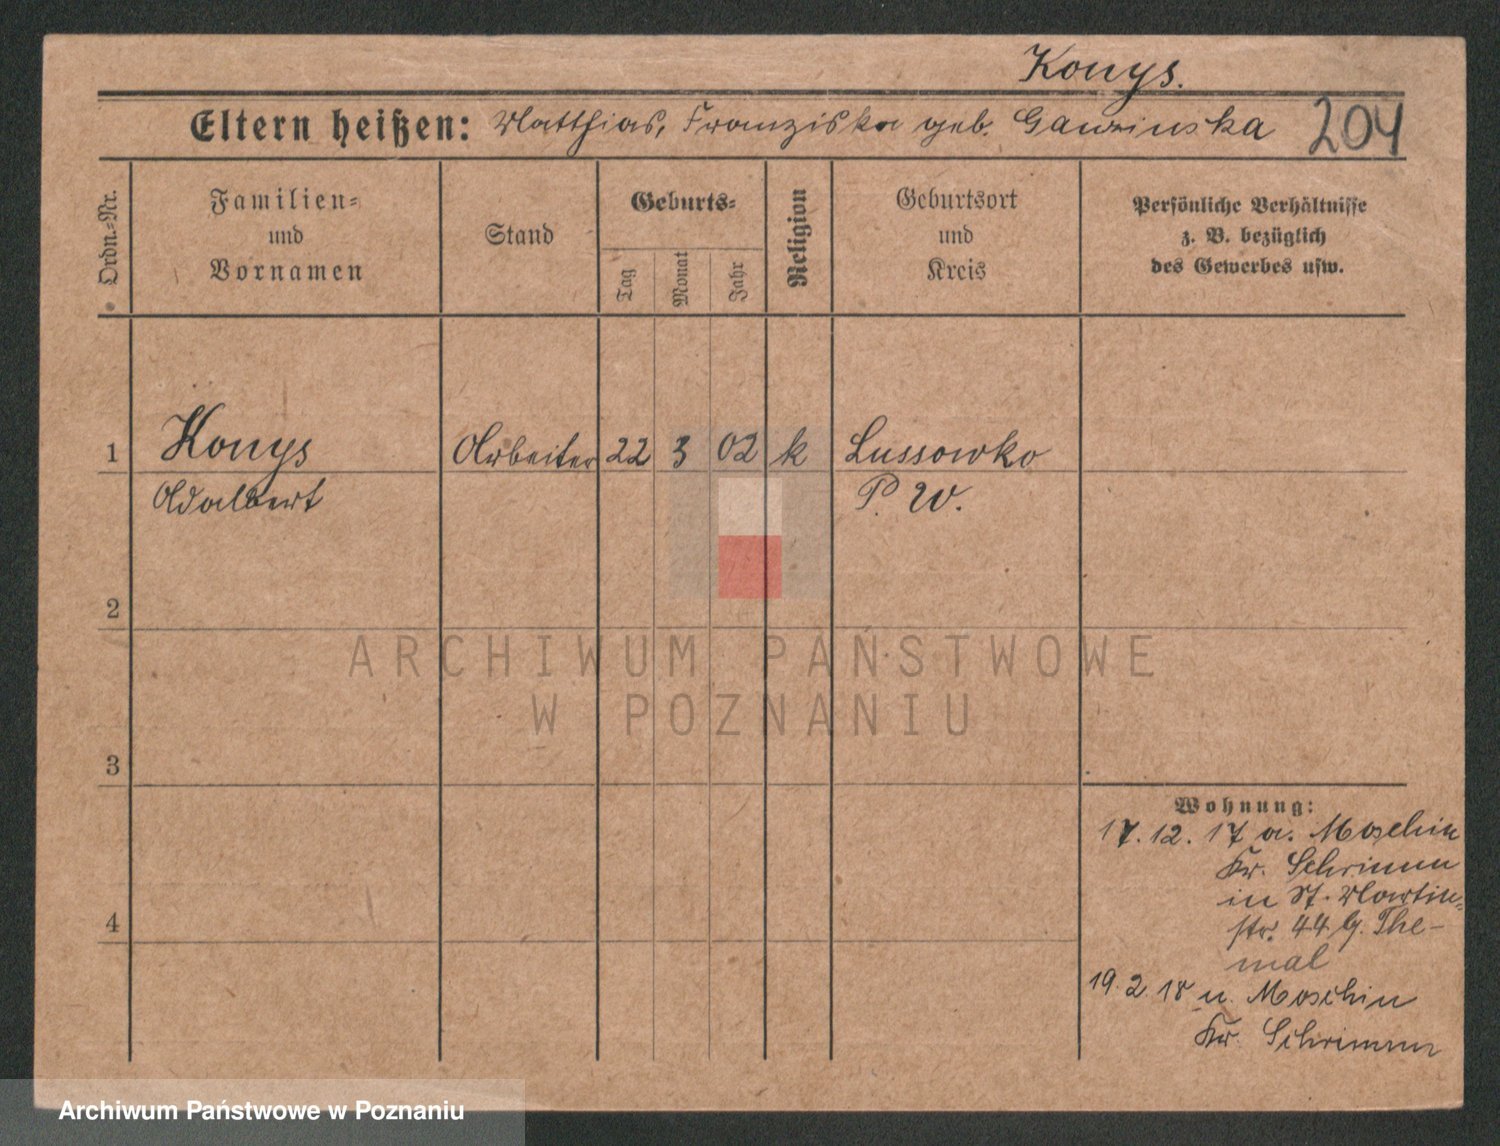 Konys.
Eltern heißen: Matthias, Franziska geb. Gawzinska 204
Ordn.-Nr.
Familien-
und
Vornamen
Stand
Geburts-
Tag
Monat
Jahr
Religion
Geburtsort
und
Kreis
Persönliche Verhältnisse
z. B. bezüglich
des Gewerbes usw.
1 Konys Arbeiter 22 3 02 k Lussowko
Adalbert P. W.
2
ARCHIWUM PAŃSTWOWE
W POZNANIU
3
Wohnung:
17.12.17 a. Moschin
Kr. Schrimm
in St. Martin-
str. 44 b. The-
mal
4
19.2.18 n. Moschin
Kr. Schrimm
Archiwum Państwowe w Poznaniu